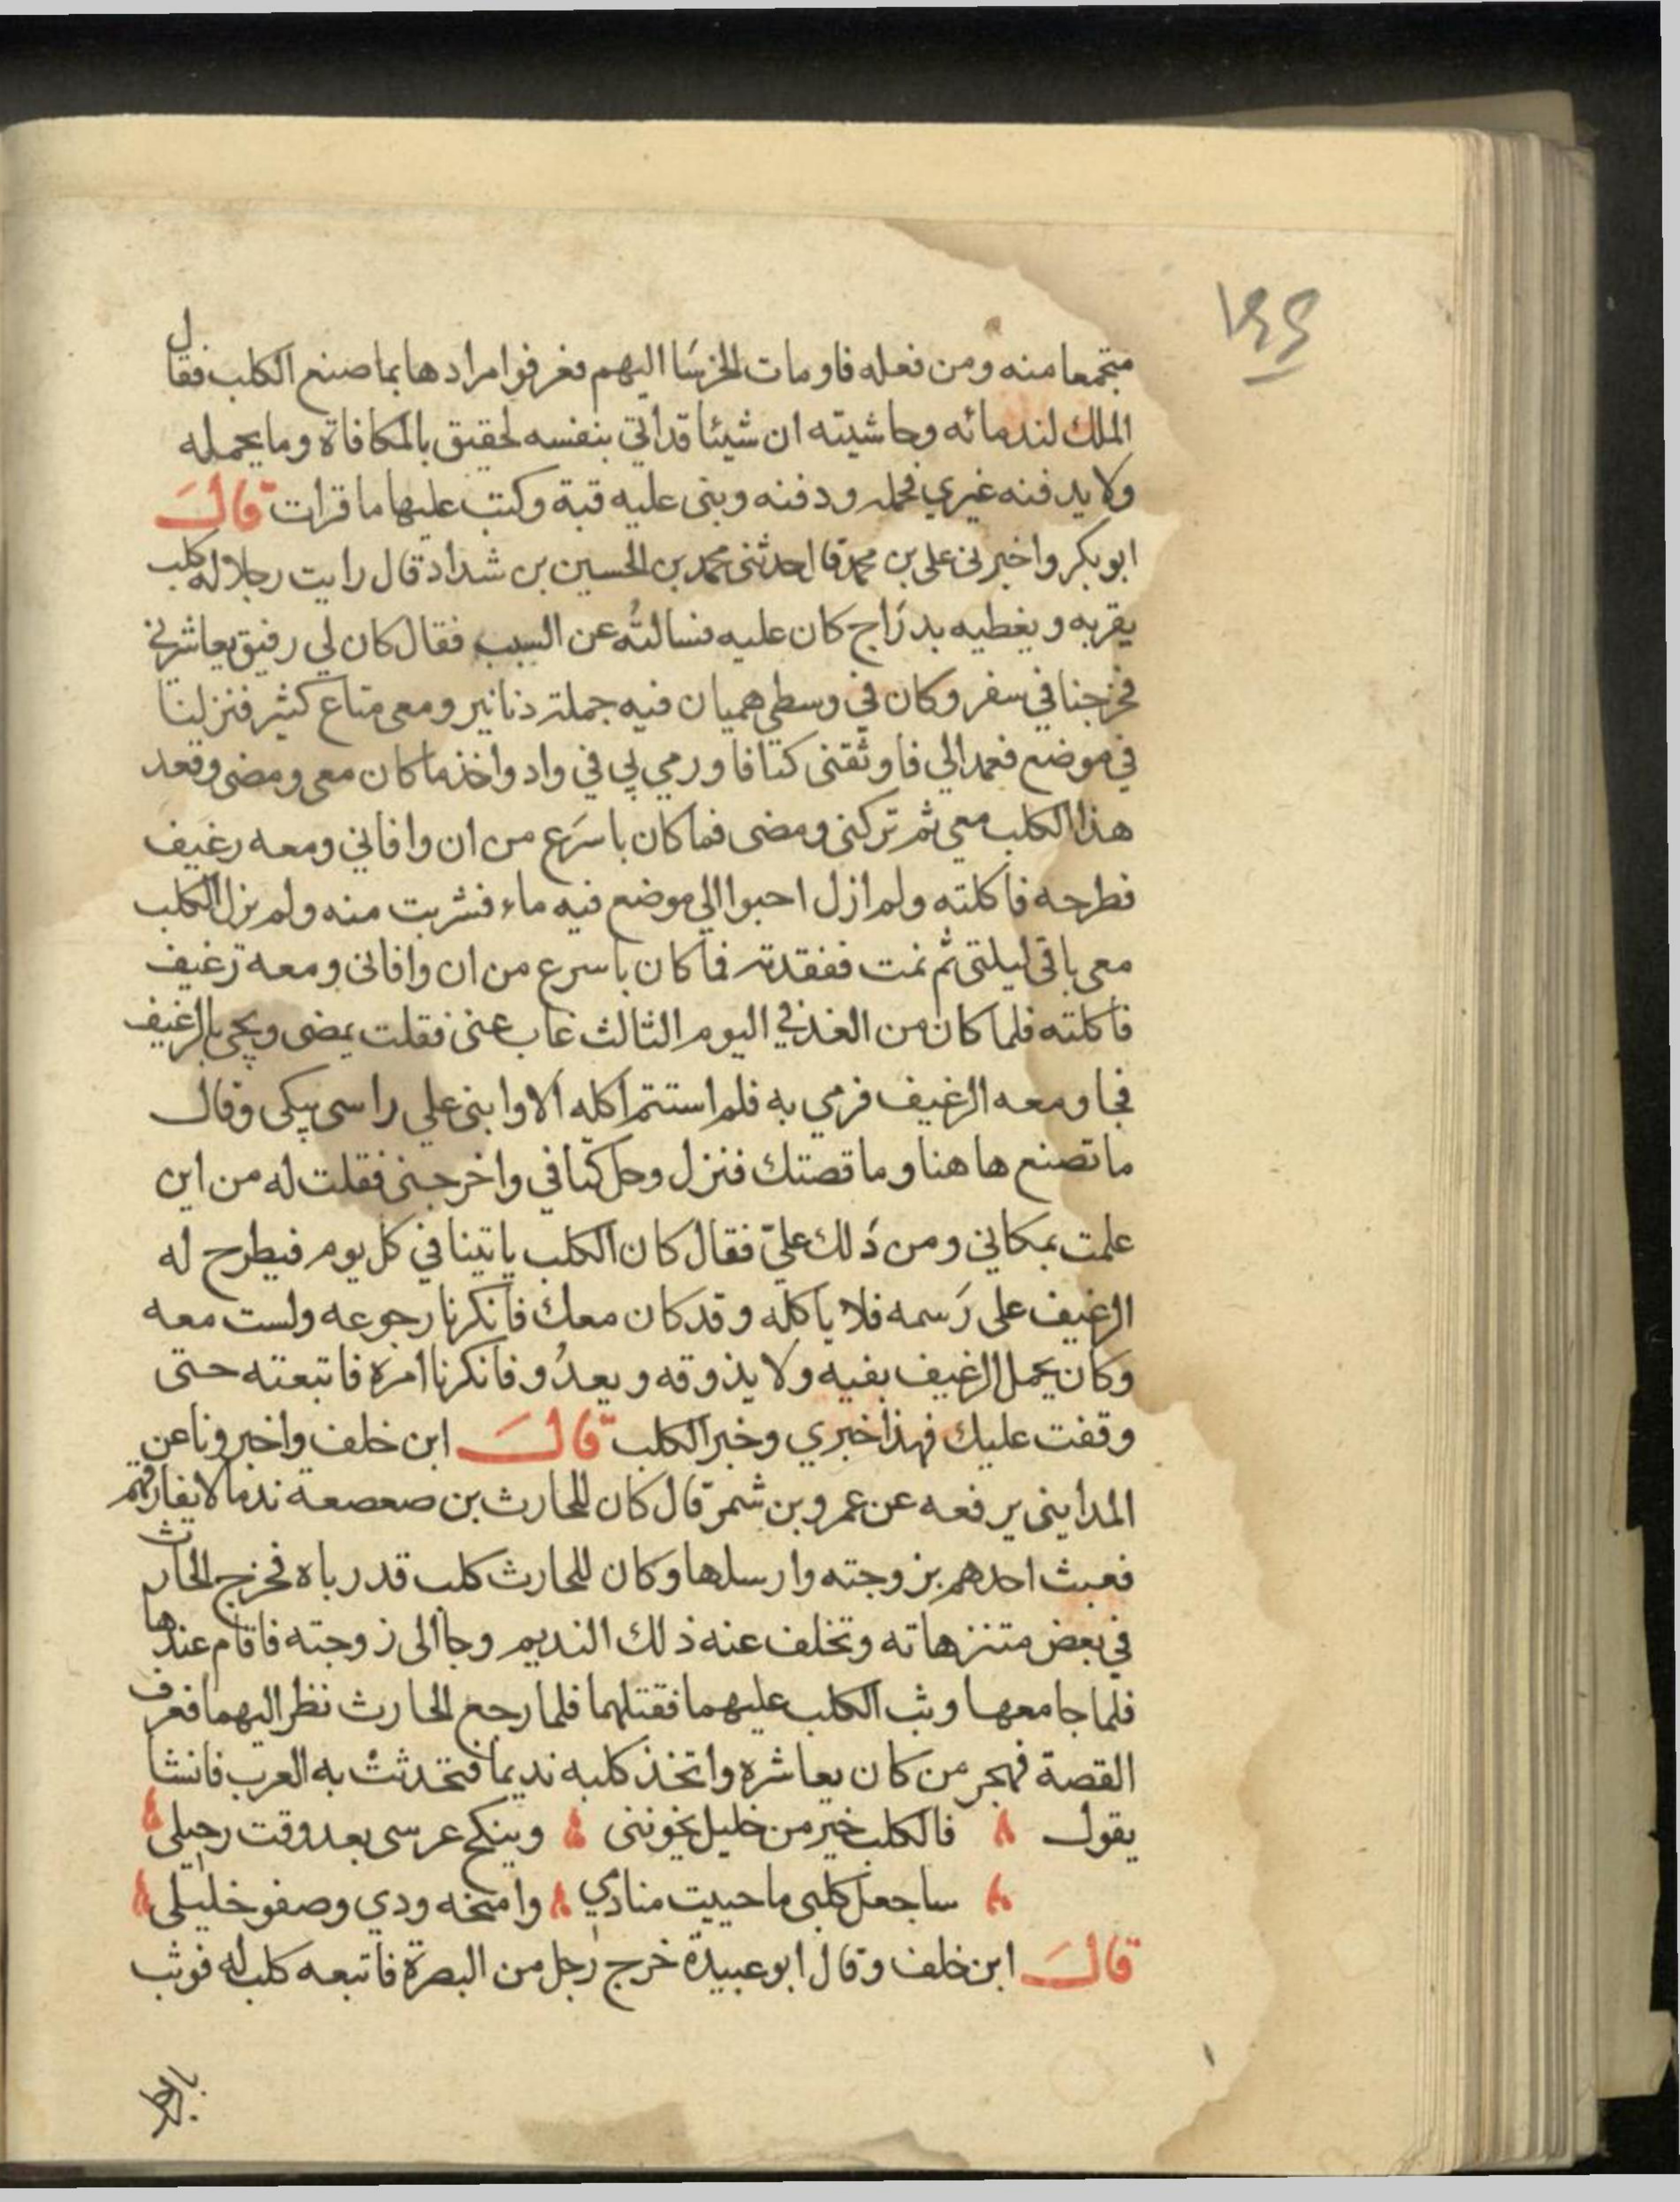 ١٤٤
متجمعا منه ومن فعله فاومات الخرسا اليهم فعرفوا مرادها بما صنع الكلب فقال
الملك لندمائه وحاشيته ان شيئا قد اتي بنفسه لحقيق بالمكافاة وما يحمله
ولا يدفنه غيري فحمله ودفنه وبنى عليه قبة وكتب عليها ما قرات قال
ابو بكر واخبرني على بن محمد قا احدثنى محمد بن الحسين بن شداد قال رايت رجلا له كلب
يقربه ويغطيه بدراج كان عليه فسالته عن السبب فقال كان لي رفيق يعاشرني
فخرجنا في سفر وكان في وسطي هميان فيه جملة دنانير ومعى متاع كثير فنزلنا
في موضع فعمد الي فاوثقنى كتافا ورمي بي في واد واخذ ما كان معى ومضى وقعد
هذا الكلب معي ثم تركنى ومضى فما كان باسرع من ان وافاني ومعه رغيف
فطرحه فاكلته ولم ازل احبوا الي موضع فيه ماء فشربت منه ولم يزل الكلب
معى باقى ليلتى ثم نمت ففقدته فما كان باسرع من ان وافانى ومعه رغيف
فاكلته فلما كان من الغد في اليوم الثالث غاب عنى فقلت يمضى ويجى بالرغيف
فجا ومعه الرغيف فرمي به فلم استتم اكله الا وابنى علي راسى يبكى وقال
ما تصنع ها هنا وما قصتك فنزل وحل كتافي واخرجنى فقلت له من اين
علمت بمكاني ومن دلك علي فقال كان الكلب ياتينا في كل يوم فيطرح له
الرغيف على رسمه فلا ياكله وقد كان معك فانكرنا رجوعه ولست معه
وكان يحمل الرغيف بفيه ولا يذوقه ويعدو فانكرنا امره فاتبعته حتى
وقفت عليك فهذا خبري وخبر الكلب قال ابن خلف واخبرونا عن
المداينى يرفعه عن عمرو بن شمر قال كان للحارث بن صعصعة ندما لا يفارقهم
فعبث احدهم بزوجته وارسلها وكان للحارث كلب قد رباه فخرج الحارث
في بعض متنزهاته وتخلف عنه ذلك النديم وجا الى زوجته فاقام عندها
فلما جامعها وثب الكلب عليهما فقتلهما فلما رجع الحارث نظر اليهما فعرف
القصة فهجر من كان يعاشره واتخذ كلبه نديما فتحدثت به العرب فانشا
يقول فالكلب خير من خليل يخوننى وينكح عرسى بعد وقت رحيلى
ساجعل كلبى ما حييت منادمي وامنحه ودي وصفو خليلى
قال ابن خلف وقال ابو عبيدة خرج رجل من البصرة فاتبعه كلب له فوثب